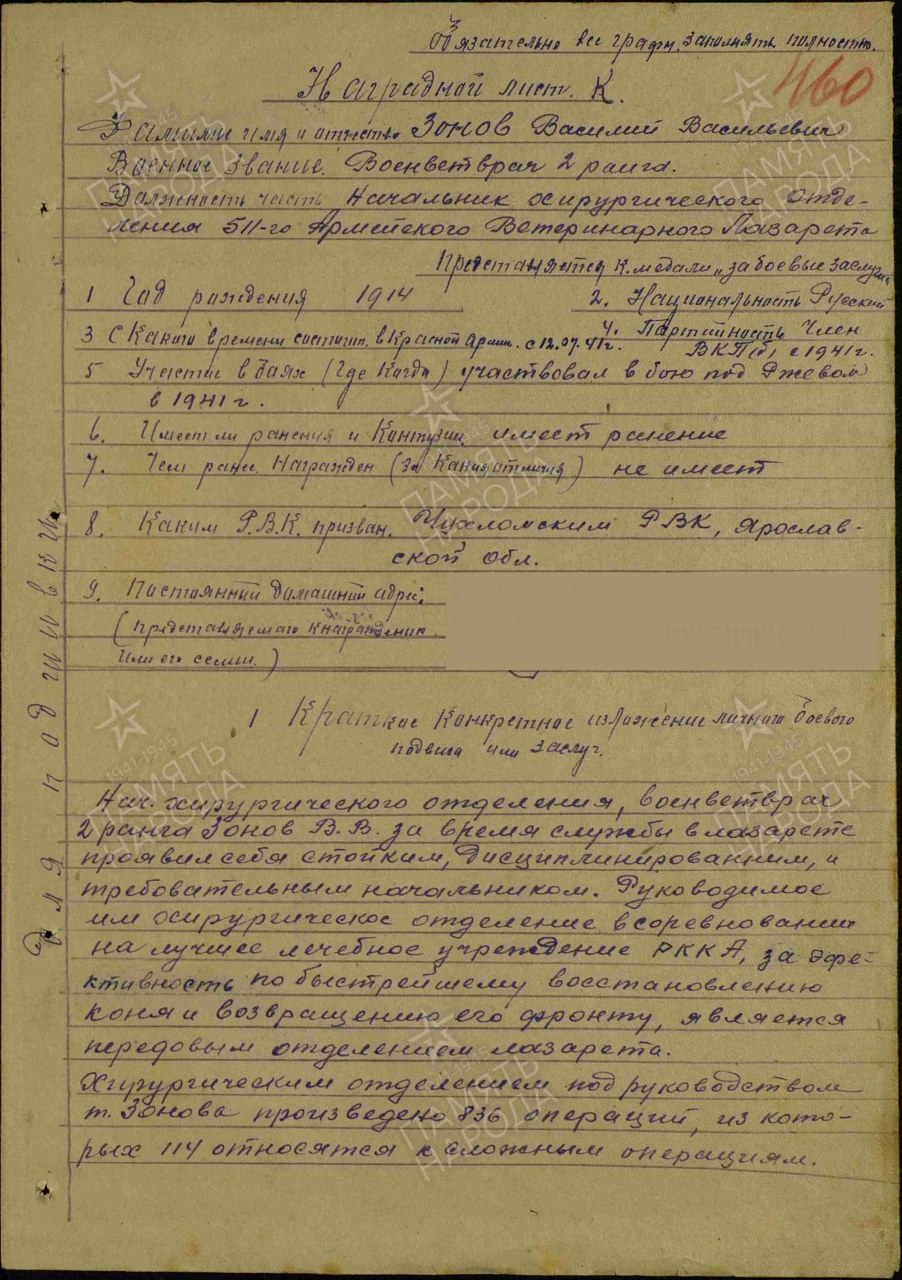 Обязательно все графы заполнять полностью.
460
Наградной лист. К.
Фамилие имя и отчество Зонов Василий Васильевич
Военное звание. Военветврач 2 ранга.
Должность часть Начальник хирургического отде-
ления 511-го Армейского Ветеринарного Лазарета
Представляется к медали „за боевые заслуги
1 Год рождения 1914
2. Национальность Русский
3 С какого времени состоит. в Красной Армии. с 12.07.41г.
4. Партийность Член
ВКП(б) с 1941г.
5 Участие в боях (где когда) участвовал в бою под Ржевом
в 1941г.
6. Имеет ли ранения и контузии имеет ранение
7. Чем ранее награжден (за какие отличия) не имеет
8. Каким Р.В.К. призван. Чухломским РВК, Ярослав-
ской обл.
9. Постоянный домашний адрес
(представляемого к награждению
или его семьи.)
1 Краткое конкретное изложение личного боевого
подвига или заслуг.
Нач. хирургического отделения, военветврач
2 ранга Зонов В.В. за время службы в лазарете
проявил себя стойким, дисциплинированным, и
требовательным начальником. Руководимое
им хирургическое отделение в соревновании
на лучшее лечебное учреждение РККА, за эфе-
ктивность по быстрейшему восстановлению
коня и возвращению его фронту, является
передовым отделением лазарета.
Хирургическим отделением под руководством
т. Зонова произведено 836 операций, из кото-
рых 114 относятся к сложным операциям.
для подшивки
ПАМЯТЬ НАРОДА
1941-1945